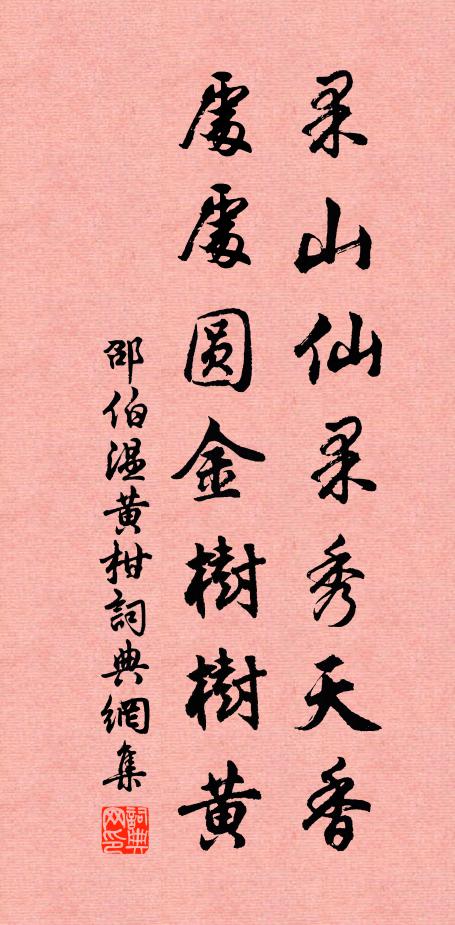 果山仙果秀天香
處處圆金樹樹黄
邵伯温黄柑詞典網集
詞典网印